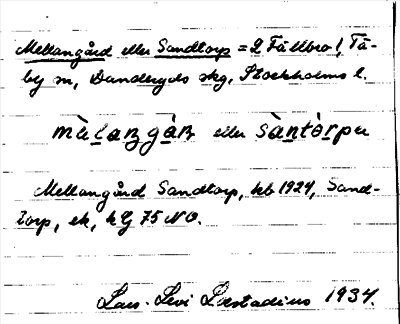 Mellangård eller Sandtorp = 2 Fällbro 1, Tä-
by sn, Danderyds skg, Stockholms l.
mälangån eller sàntòrpu
Mellangård Sandtorp, hb 1924, Sand-
torp, ek, hg 75 NO.
Lars-Levi Læstadius 1934.